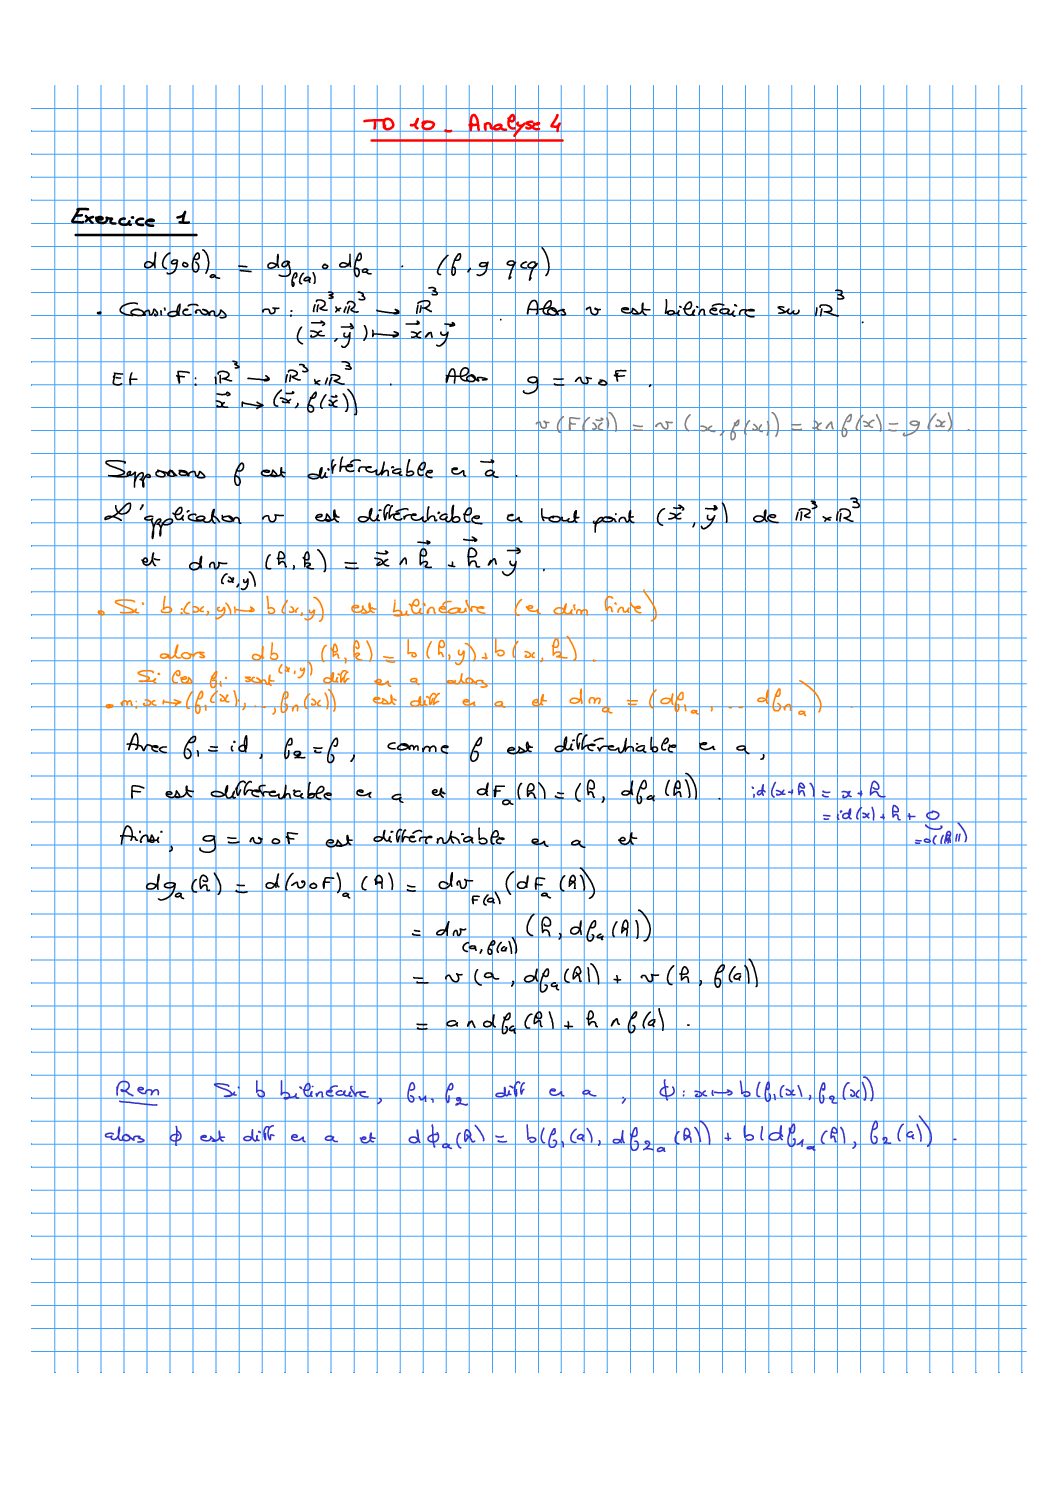 TD 10 - Analyse 4
Exercice 1
d(g∘f)_a = dg_{f(a)} ∘ df_a . (f, g qcq)
• Considérons v : ℝ³×ℝ³ → ℝ³ . Alors v est bilinéaire sur ℝ³ .
(x⃗, y⃗) ↦ x⃗∧y⃗
Et F : ℝ³ → ℝ³×ℝ³ . Alors g = v∘F .
x⃗ ↦ (x⃗, f(x⃗))
v(F(x⃗)) = v(x, f(x)) = x∧f(x) = g(x) .
Supposons f est différentiable en a⃗ .
L'application v est différentiable en tout point (x⃗, y⃗) de ℝ³×ℝ³
et dv_{(x,y)}(h, k) = x⃗∧k⃗ + h⃗∧y⃗ .
• Si b : (x, y) ↦ b(x, y) est bilinéaire (en dim finie)
alors db_{(x,y)}(h, k) = b(h, y) + b(x, k) .
Si les f_i sont diff en a alors
• m : x ↦ (f_1(x), ..., f_n(x)) est diff en a et dm_a = (df_{1a}, ... df_{na})
Avec f_1 = id, f_2 = f, comme f est différentiable en a,
F est différentiable en a et dF_a(h) = (h, df_a(h)) . id(x+h) = x+h
= id(x) + h + 0
= o(‖h‖)
Ainsi, g = v∘F est différentiable en a et
dg_a(h) = d(v∘F)_a(h) = dv_{F(a)}(dF_a(h))
= dv_{(a,f(a))}(h, df_a(h))
= v(a, df_a(h)) + v(h, f(a))
= a∧df_a(h) + h∧f(a) .
Rem Si b bilinéaire, f_1, f_2 diff en a, ϕ : x ↦ b(f_1(x), f_2(x))
alors ϕ est diff en a et dϕ_a(h) = b(f_1(a), df_{2a}(h)) + b(df_{1a}(h), f_2(a)) .